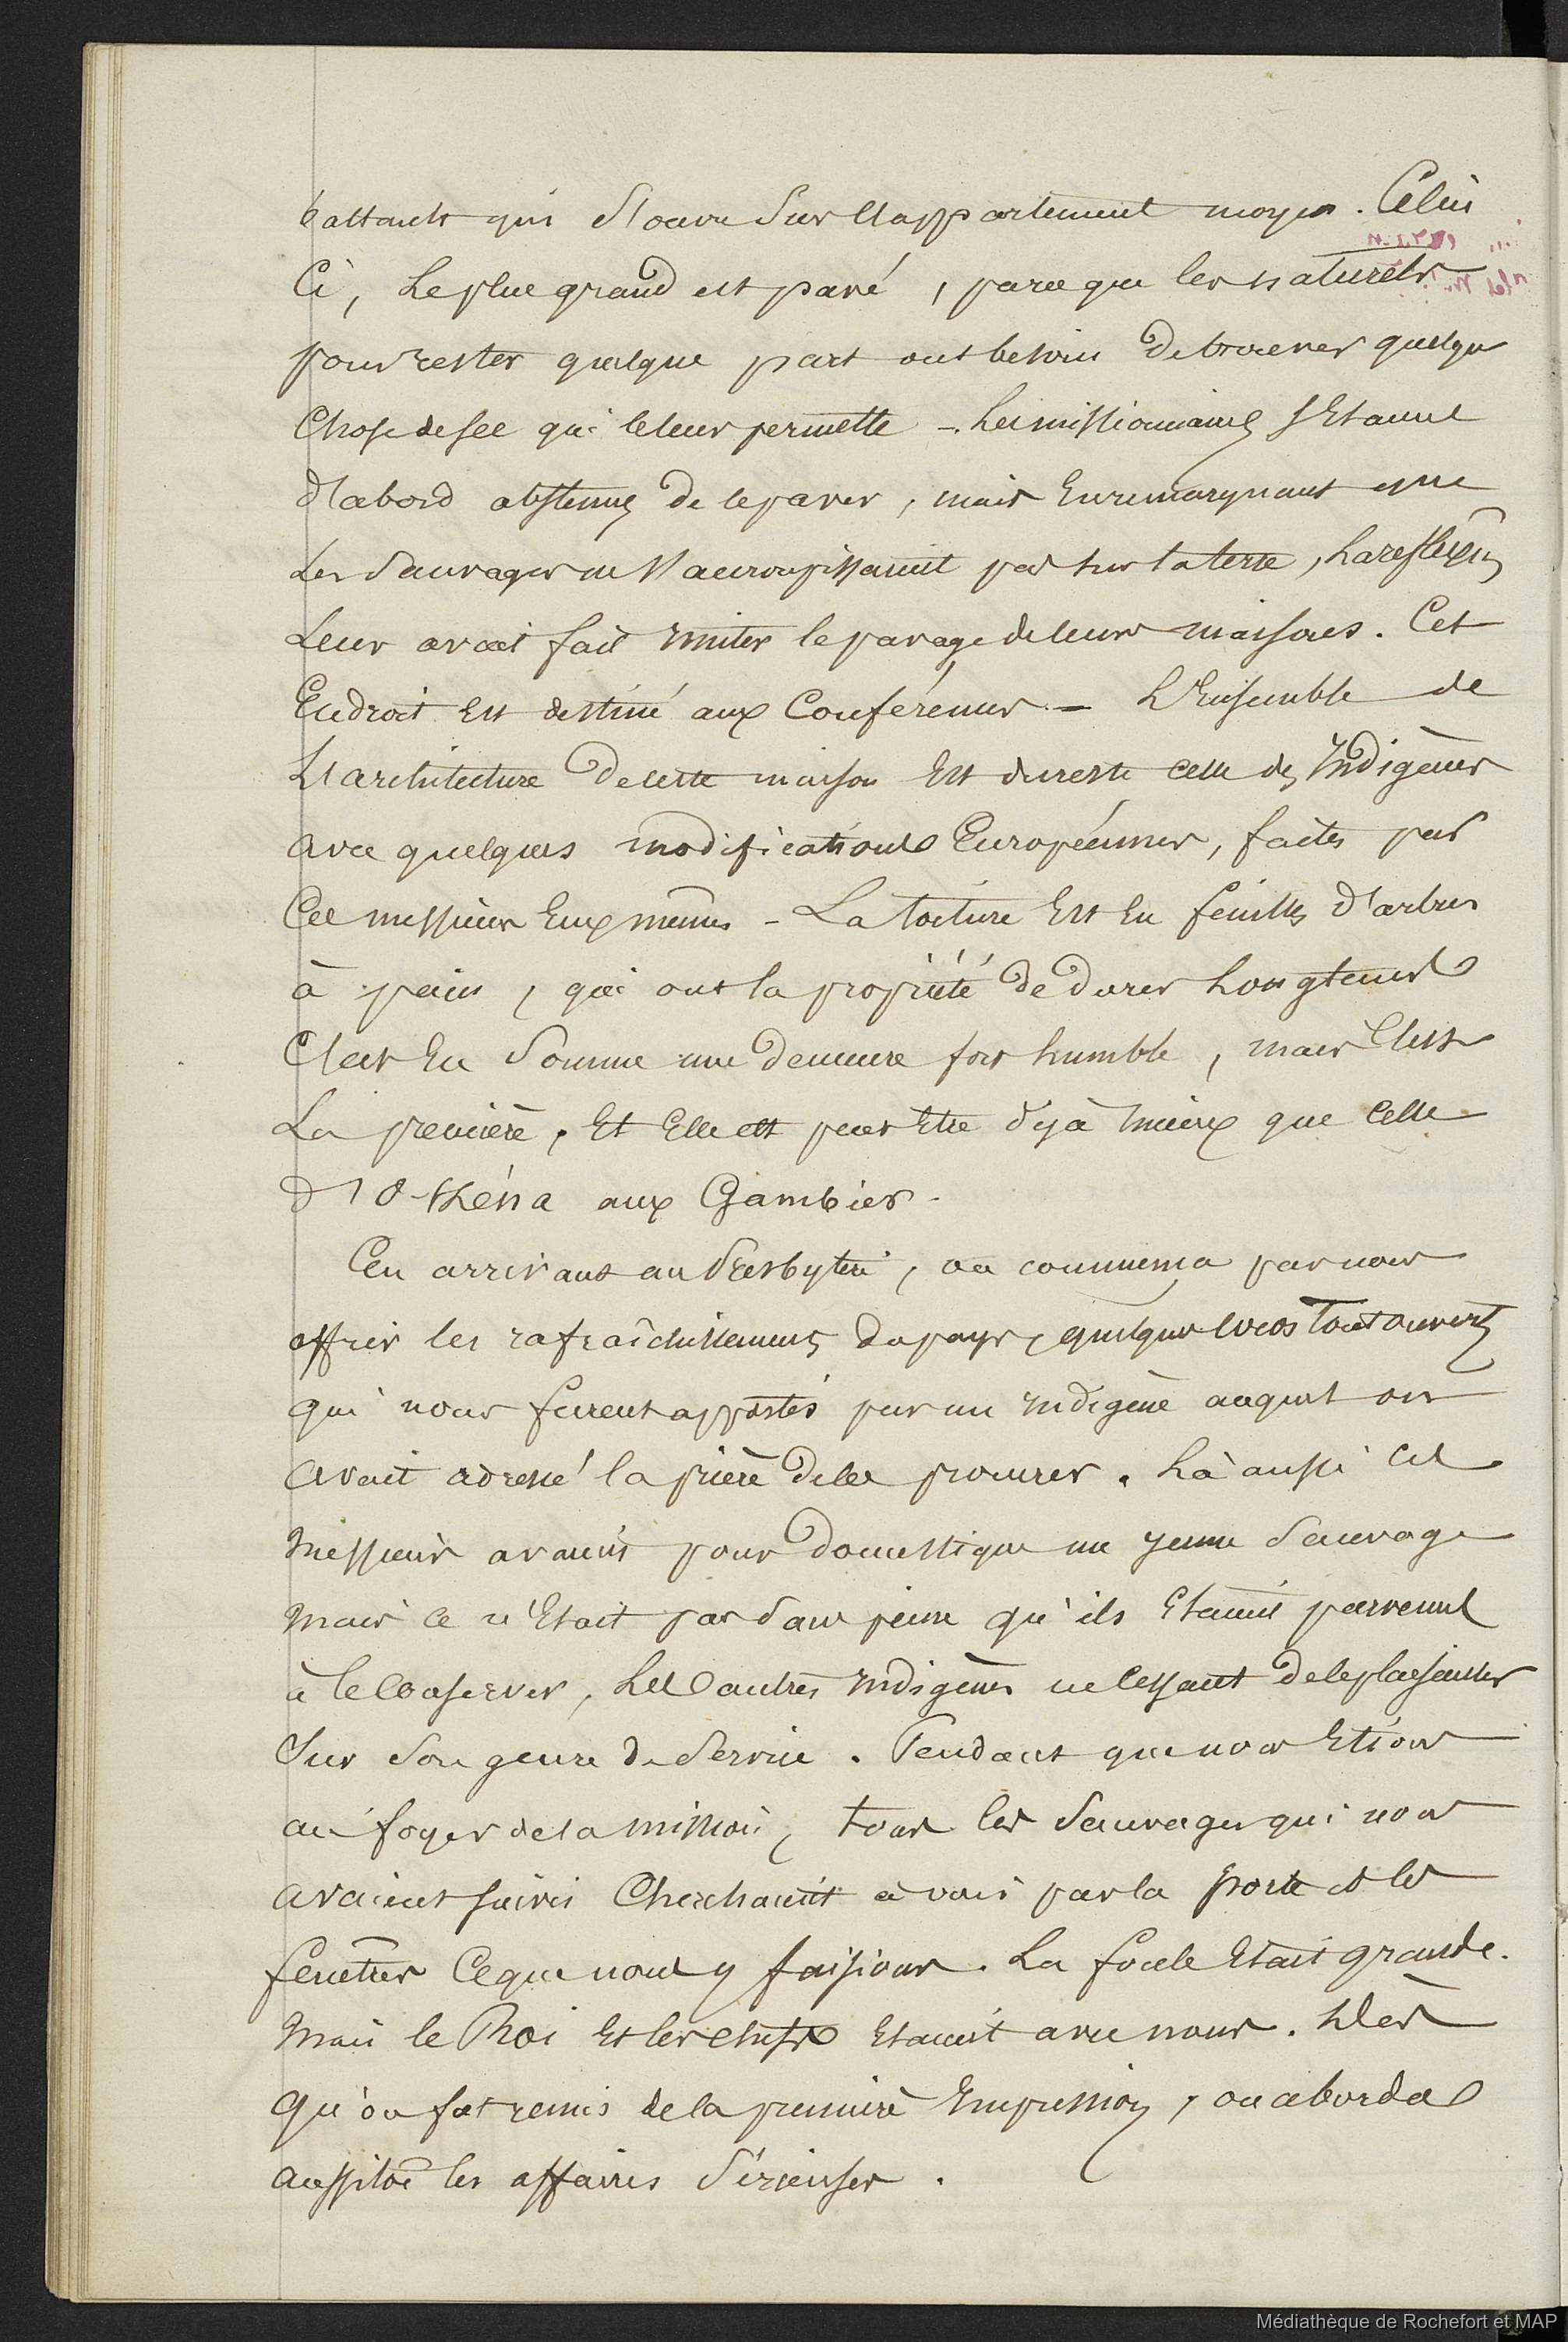 battants qui s'ouvre sur l'appartement moyen. Celui
Ci, le plus grand est pavé, parce que les naturels
pour rester quelque part ont besoin de trouver quelque
chose de sec qui le leur permette - Les missionnaires s'étaient
d'abord abstenus de le paver, mais en remarquant que
les Sauvages ne s'accroupissaient pas sur la terre, la reflexion
leur avait fait imiter le pavage de leurs maisons. Cet
Endroit est destiné aux Conférences - L'Ensemble de
L'architecture de cette maison est du reste celle des Indigènes
avec quelques modifications Européennes, faites par
Ces messieurs Eux mêmes - La toiture est en feuilles d'arbres
à pain, qui ont la propriété de durer longtems
C'est en somme une demeure fort humble, mais C'est
La première, et Elle est peut Etre déjà mieux que Celle
d'O-Kéna aux Gambier.
En arrivant au Presbytère, on commença par nous
offrir les rafraîchissements du pays, quelques cocos tout ouverts
qui nous furent apportés par un indigène auquel on
avait adressé la prière de les procurer. Là aussi Ces
Messieurs avaient pour domestique un jeune Sauvage
mais ce n'Etait pas sans peine qu'ils Etaient parvenus
à le Conserver, Les autres indigènes ne cessant de le plaisanter
Sur Son genre de Service. Pendant que nous Etions
au foyer de la mission, tous les Sauvages qui nous
avaient suivis Cherchaient à voir par la porte et les
fenêtres Ce que nous y faisions. La foule Etait grande.
Mais le Roi Et les chefs Etaient avec nous. Dès
qu'on fut remis de la première Impression, on aborda
aussitôt les affaires Sérieuses.
Médiathèque de Rochefort et MAP